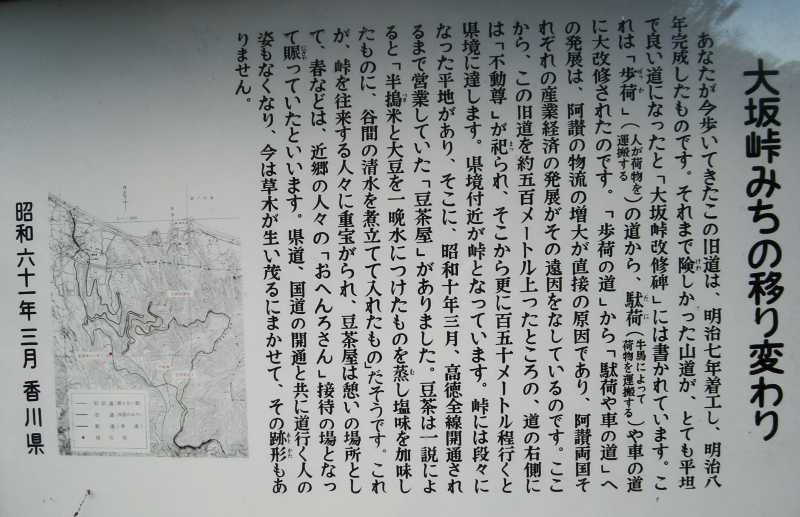 大坂峠みちの移り変わり
あなたが今歩いてきたこの旧道は、明治七年着工し、明治八
年完成したものです。それまで険しかった山道が、とても平坦
で良い道になったと「大坂峠改修碑」には書かれています。こ
れは「歩荷」（人が荷物を運搬する）の道から、駄荷（牛馬によって荷物を運搬する）や車の道
に大改修されたのです。「歩荷の道」から「駄荷や車の道」へ
の発展は、阿讃の物流の増大が直接の原因であり、阿讃両国そ
れぞれの産業経済の発展がその遠因をなしているのです。ここ
から、この旧道を約五百メートル上ったところの、道の右側に
は「不動尊」が祀られ、そこから更に百五十メートル程行くと
県境に達します。県境付近が峠となっています。峠には段々に
なった平地があり、そこに、昭和十年三月、高徳全線開通され
るまで営業していた「豆茶屋」がありました。豆茶は一説によ
ると「半搗米と大豆を一晩水につけたものを蒸し塩味を加味し
たものに、谷間の清水を煮立てて入れたもの」だそうです。これ
が、峠を往来する人々に重宝がられ、豆茶屋は憩いの場所とし
て、春などは、近郷の人々の「おへんろさん」接待の場となっ
て賑っていたといいます。県道、国道の開通と共に道行く人の
姿もなくなり、今は草木が生い茂るにまかせて、その跡形もあ
りません。
昭和六十一年三月 香川県